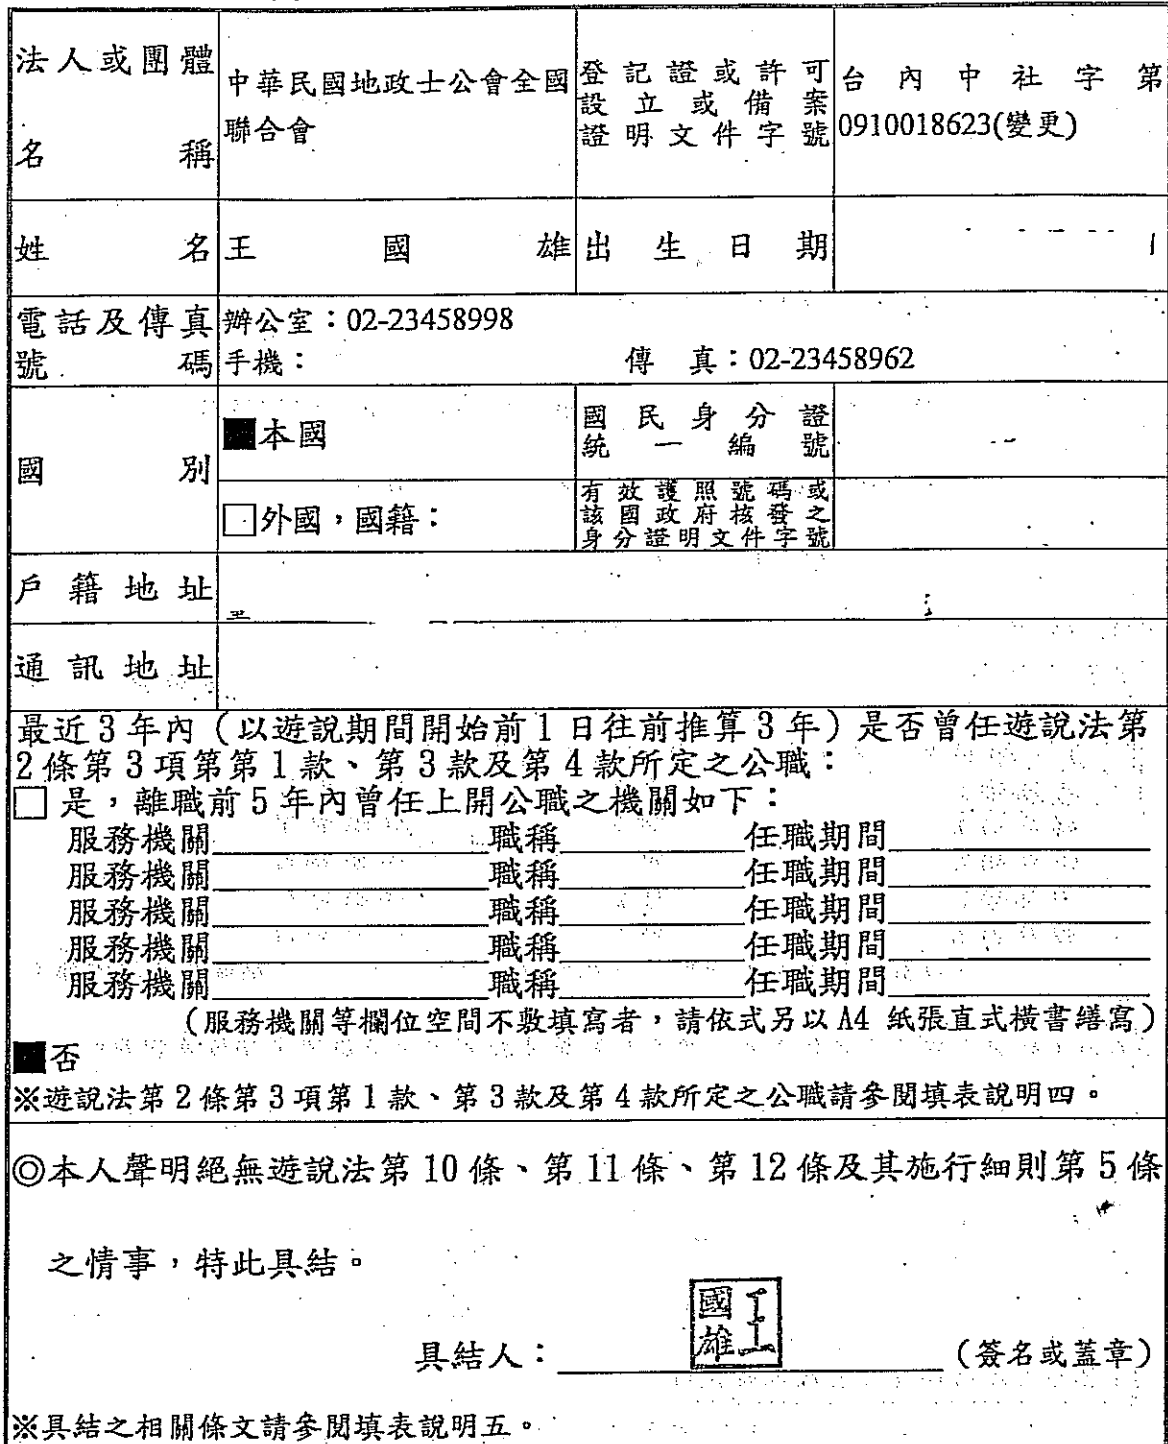 法人或團體
名稱
中華民國地政士公會全國
聯合會
登記證或許可
設立或備案
證明文件字號
台內中社字第
0910018623(變更)
姓名
王國雄
出生日期
電話及傳真
號碼
辦公室：02-23458998
手機： 傳真：02-23458962
國別
■本國
國民身分證
統一編號
□外國，國籍：
有效護照號碼或
該國政府核發之
身分證明文件字號
戶籍地址
通訊地址
最近3年內（以遊說期間開始前1日往前推算3年）是否曾任遊說法第
2條第3項第第1款、第3款及第4款所定之公職：
□是，離職前5年內曾任上開公職之機關如下：
服務機關 職稱 任職期間
服務機關 職稱 任職期間
服務機關 職稱 任職期間
服務機關 職稱 任職期間
服務機關 職稱 任職期間
（服務機關等欄位空間不敷填寫者，請依式另以A4 紙張直式橫書繕寫）
■否
※遊說法第2條第3項第1款、第3款及第4款所定之公職請參閱填表說明四。
◎本人聲明絕無遊說法第10條、第11條、第12條及其施行細則第5條
之情事，特此具結。
具結人： （簽名或蓋章）
王國雄
※具結之相關條文請參閱填表說明五。